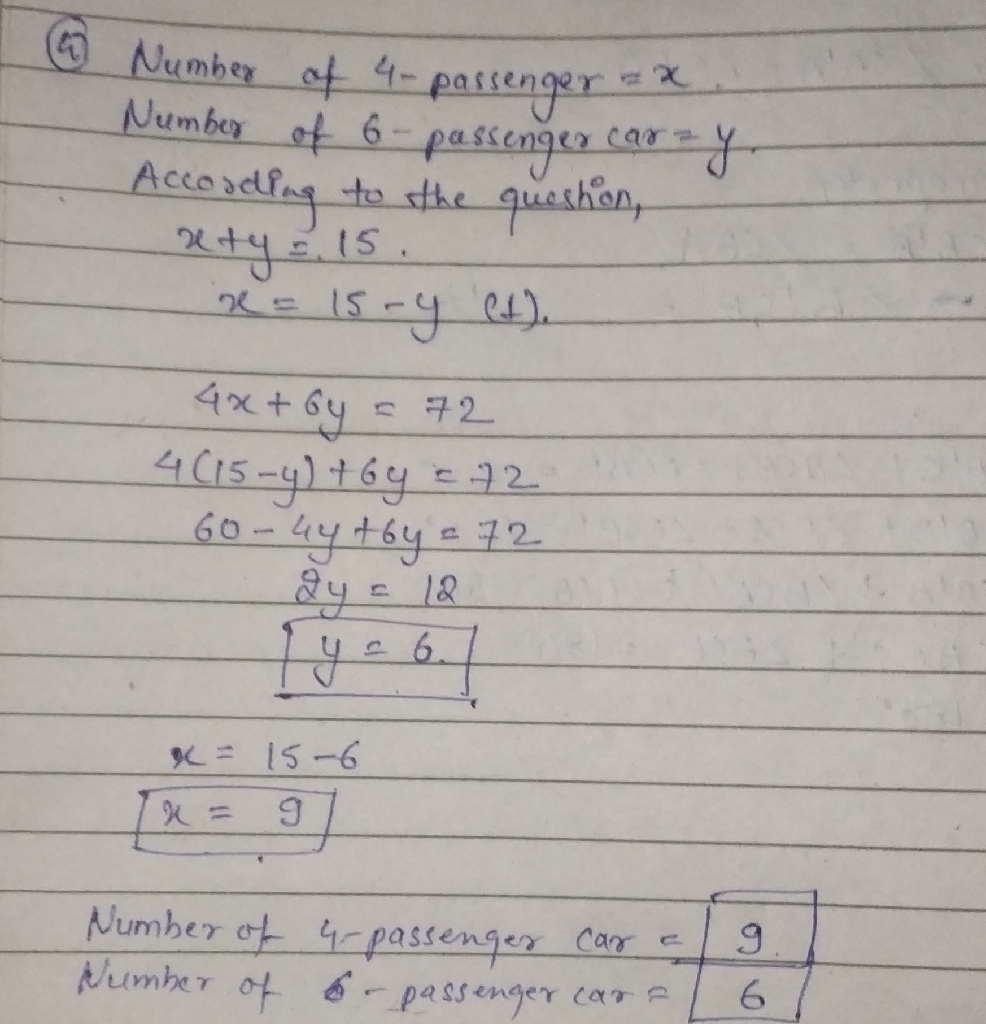 ④ Number of 4-passenger = x.
Number of 6-passenger car = y.
According to the question,
x+y = 15.
x = 15-y (1).
4x+6y = 72
4(15-y)+6y = 72
60-4y+6y = 72
2y = 12
y = 6.
x = 15-6
x = 9
Number of 4-passenger car = 9.
Number of 6-passenger car = 6